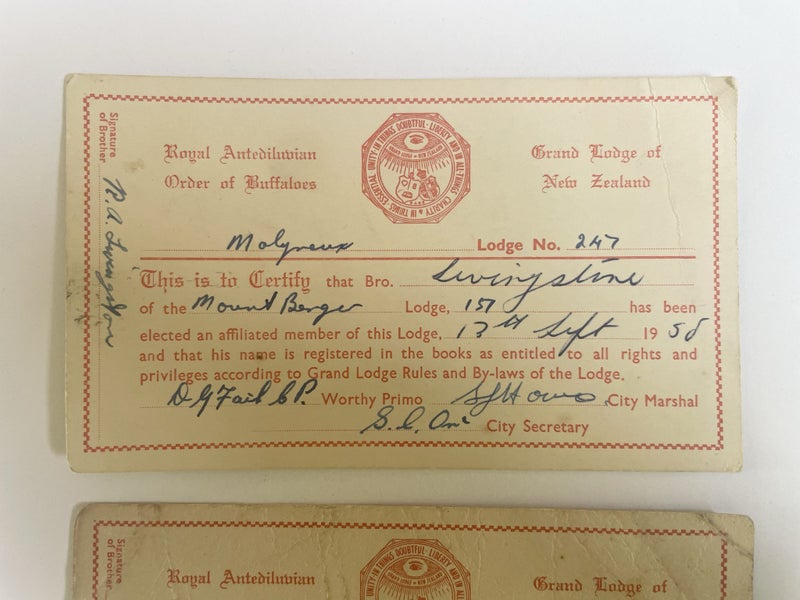 Signature
of Brother
R. A. Livingstone
Royal Antediluvian
Order of Buffaloes
UNITY IN THINGS ESSENTIAL
DOUBTFUL · LIBERTY, AND IN ALL THINGS CHARITY & IN THINGS
GRAND LODGE OF NEW ZEALAND
Grand Lodge of
New Zealand
Molyneux Lodge No. 247
This is to Certify that Bro. Livingstone
of the Mount Berger Lodge, 157 has been
elected an affiliated member of this Lodge, 13th Sept 1958
and that his name is registered in the books as entitled to all rights and
privileges according to Grand Lodge Rules and By-laws of the Lodge.
D G C.P. Worthy Primo City Marshal
S. C. City Secretary
Signature
of Brother
Royal Antediluvian
UNITY IN THINGS DOUBTFUL · LIBERTY, AND IN
GRAND LODGE OF NEW ZEALAND
Grand Lodge of